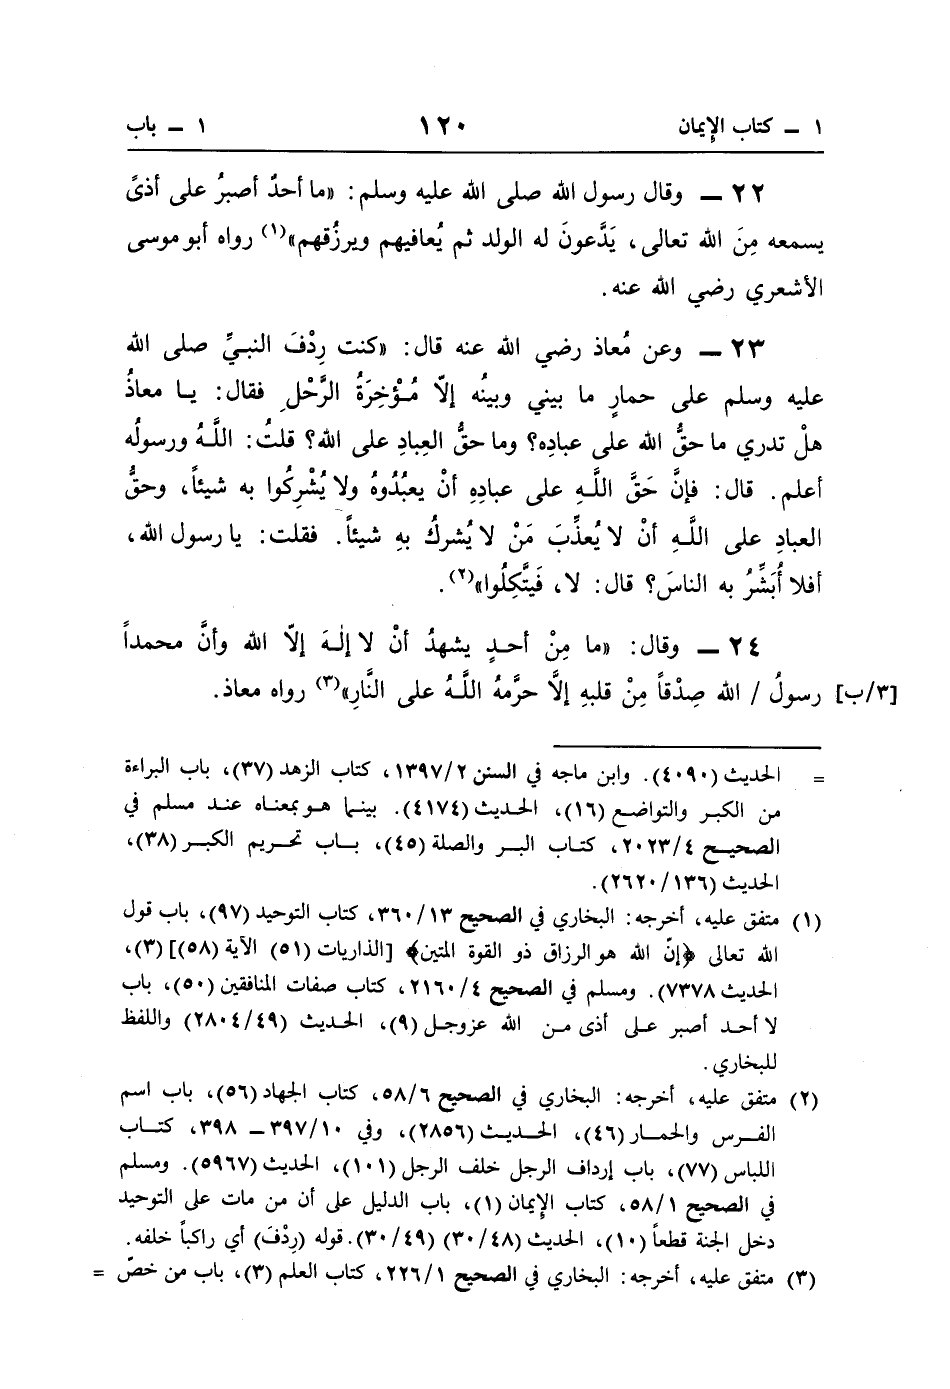 ١ ــ كتاب الإيمان ١٢٠ ١ ــ باب
٢٢ ــ وقال رسول الله صلى الله عليه وسلم: «ما أحدٌ أصبرُ على أذىً
يسمعه مِنَ الله تعالى، يَدَّعونَ له الولد ثم يُعافيهم ويرزُقهم»(١) رواه أبو موسى
الأشعري رضي الله عنه.
٢٣ ــ وعن مُعاذ رضي الله عنه قال: «كنت رِدْفَ النبيِّ صلى الله
عليه وسلم على حمارٍ ما بيني وبينُه إلّا مُؤْخِرَةُ الرَّحْلِ فقال: يا معاذُ
هلْ تدري ما حقُّ الله على عباده؟ وما حقُّ العِبادِ على الله؟ قلتُ: اللَّهُ ورسولُه
أعلم. قال: فإنَّ حَقَّ اللَّهِ على عبادِهِ أنْ يعبُدُوهُ ولا يُشْرِكُوا به شيئاً، وحقُّ
العبادِ على اللَّهِ أنْ لا يُعذِّبَ مَنْ لا يُشركُ بهِ شيئاً. فقلت: يا رسول الله،
أفلا أُبَشِّرُ به الناسَ؟ قال: لا، فَيَتَّكِلُوا»(٢).
٢٤ ــ وقال: «ما مِنْ أحدٍ يشهدُ أنْ لا إلٰهَ إلّا الله وأنَّ محمداً
[٣/ب] رسولُ / الله صِدْقاً مِنْ قلبهِ إلَّا حرَّمهُ اللَّهُ على النَّارِ»(٣) رواه معاذ.
= الحديث (٤٠٩٠). وابن ماجه في السنن ١٣٩٧/٢، كتاب الزهد (٣٧)، باب البراءة
من الكبر والتواضع (١٦)، الحديث (٤١٧٤). بينما هو بمعناه عند مسلم في
الصحيح ٢٠٢٣/٤، كتاب البر والصلة (٤٥)، باب تحريم الكبر (٣٨)،
الحديث (٢٦٢٠/١٣٦).
(١) متفق عليه، أخرجه: البخاري في الصحيح ٣٦٠/١٣، كتاب التوحيد (٩٧)، باب قول
الله تعالى ﴿إنّ الله هو الرزاق ذو القوة المتين﴾ [الذاريات (٥١) الآية (٥٨)] (٣)،
الحديث ٧٣٧٨). ومسلم في الصحيح ٢١٦٠/٤، كتاب صفات المنافقين (٥٠)، باب
لا أحد أصبر على أذى من الله عزوجل (٩)، الحديث (٢٨٠٤/٤٩) واللفظ
للبخاري.
(٢) متفق عليه، أخرجه: البخاري في الصحيح ٥٨/٦، كتاب الجهاد (٥٦)، باب اسم
الفرس والحمار (٤٦)، الحديث (٢٨٥٦)، وفي ٣٩٧/١٠ ــ ٣٩٨، كتاب
اللباس (٧٧)، باب إرداف الرجل خلف الرجل (١٠١)، الحديث (٥٩٦٧). ومسلم
في الصحيح ٥٨/١، كتاب الإيمان (١)، باب الدليل على أن من مات على التوحيد
دخل الجنة قطعاً (١٠)، الحديث (٣٠/٤٨) (٣٠/٤٩). قوله (رِدْفَ) أي راكباً خلفه.
(٣) متفق عليه، أخرجه: البخاري في الصحيح ٢٢٦/١، كتاب العلم (٣)، باب من خصّ =